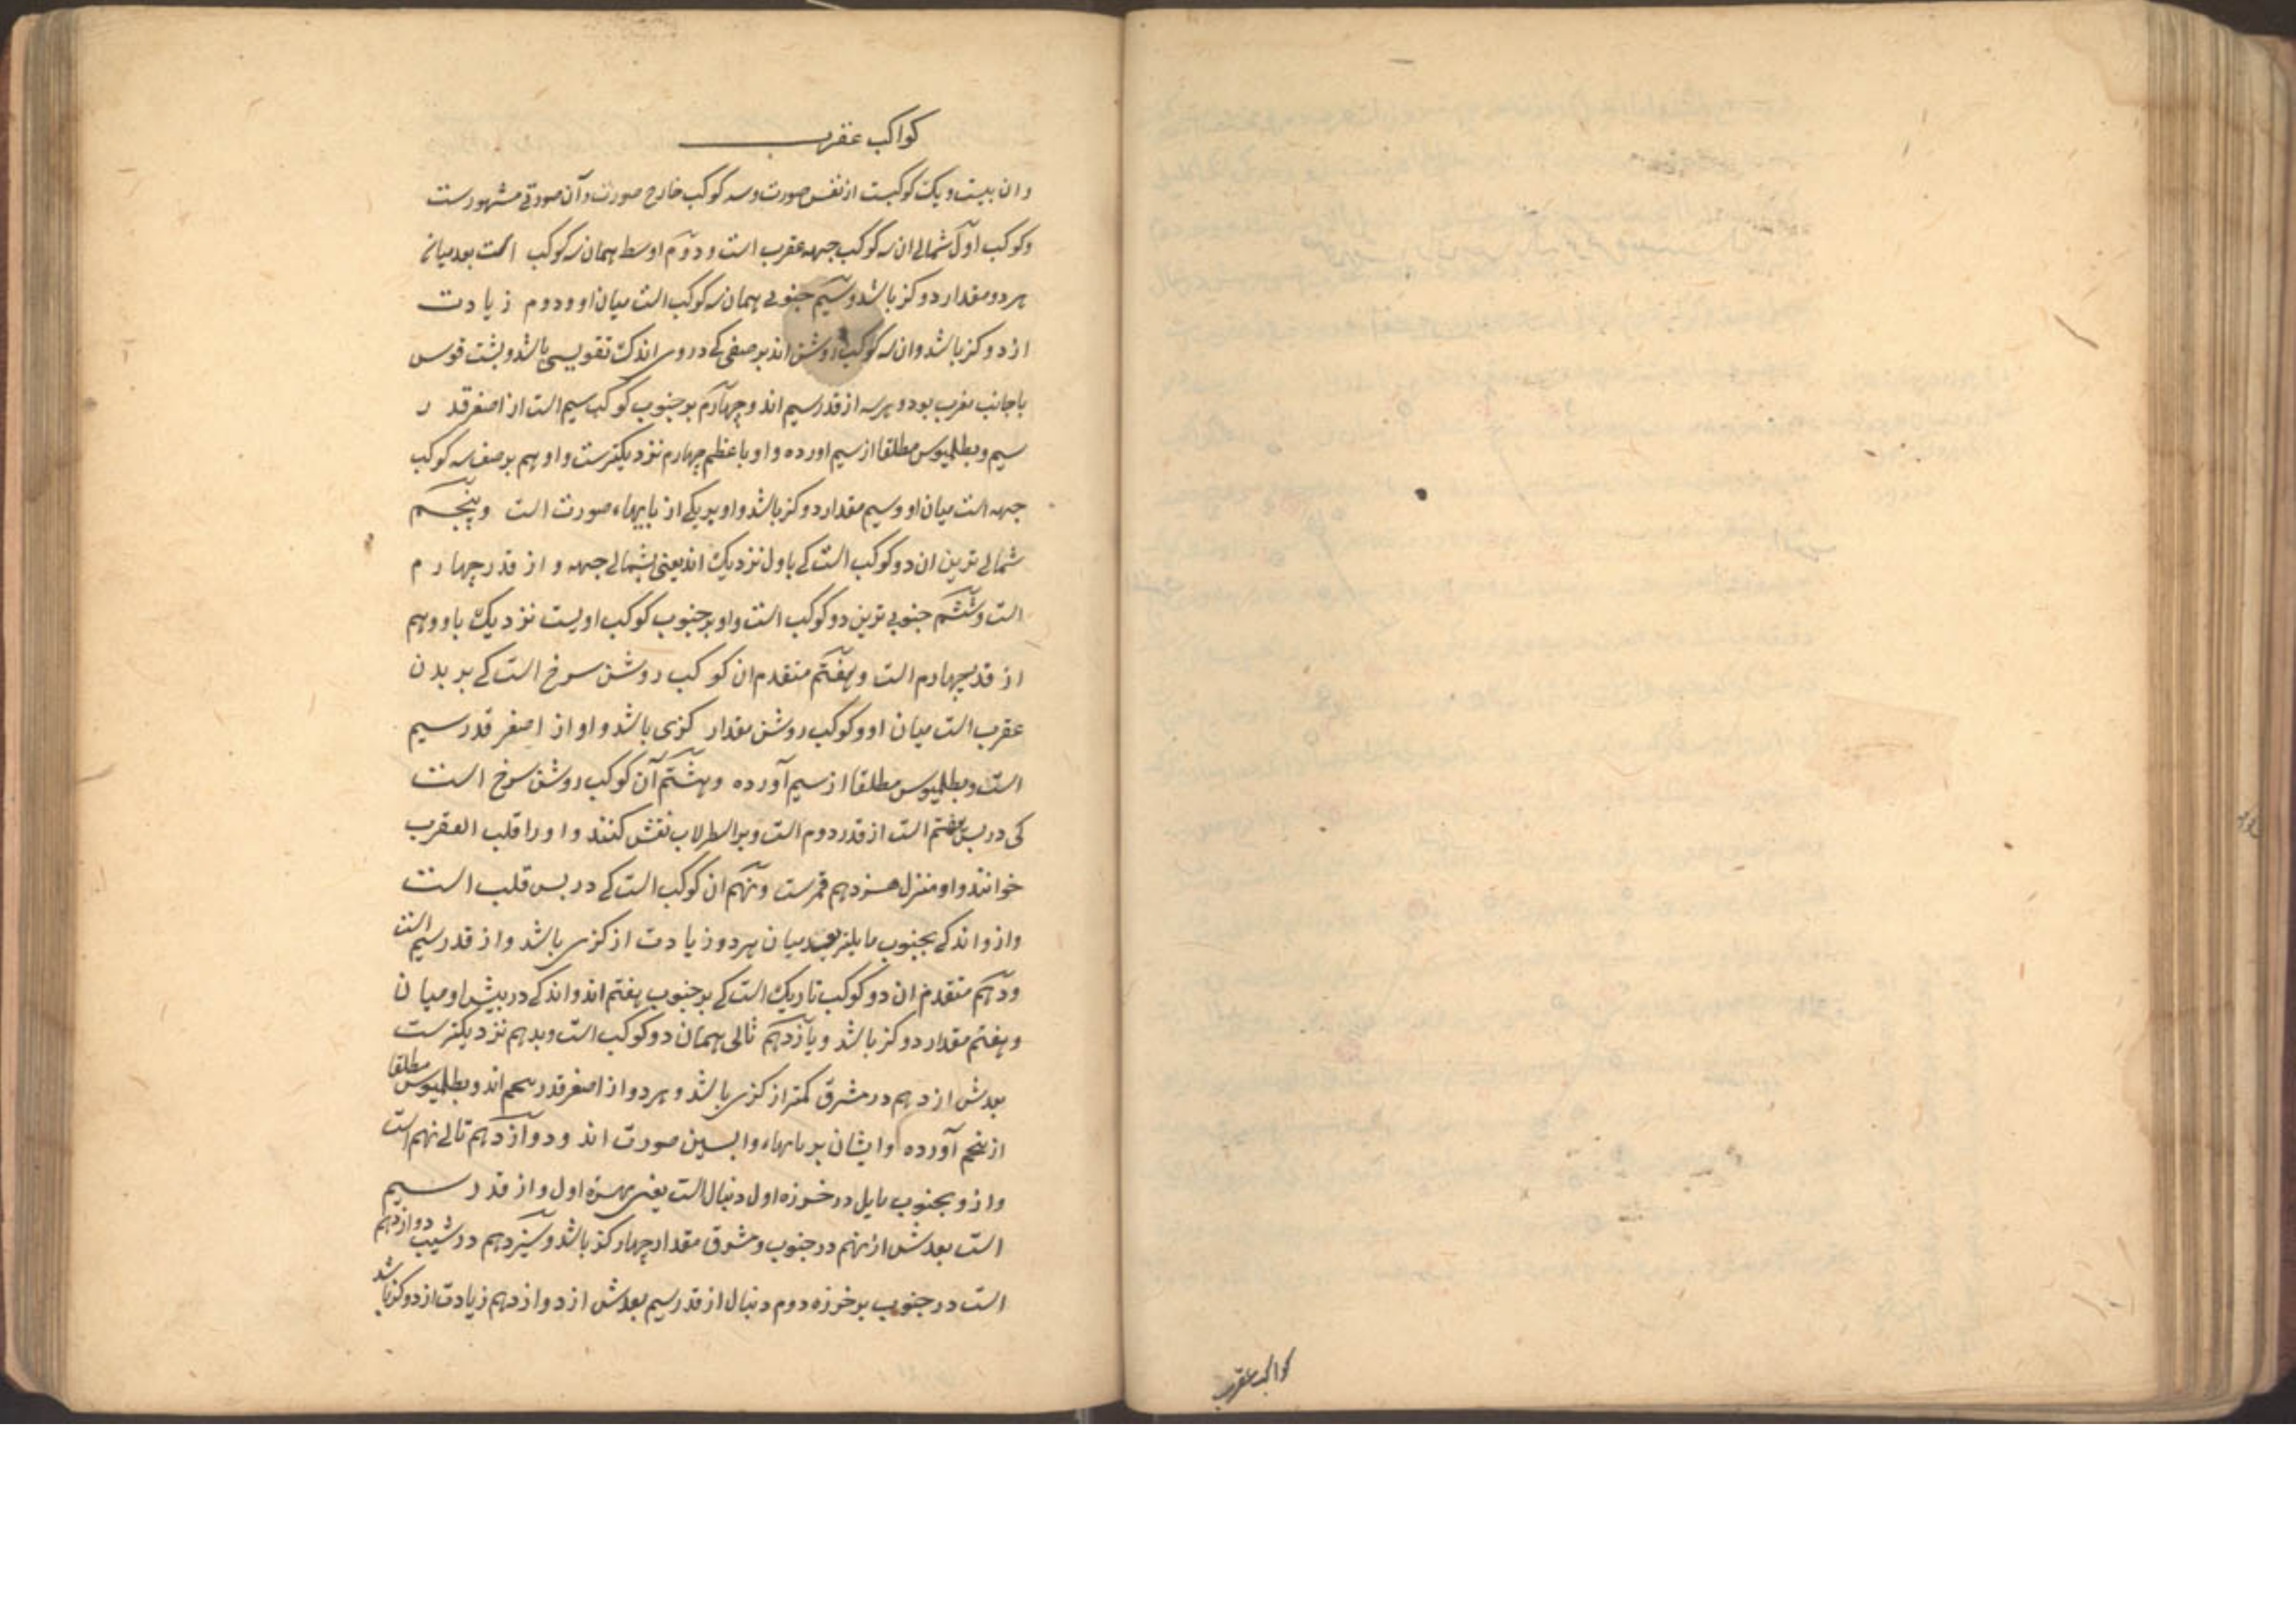 کواکب عقرب
وان بیست و یک کوکبست از نفس صورت و سه کوکب خارج صورت و آن صورتی مشهورست
و کوکب اول شمالی ان سه کوکب جبهه عقرب است و دوم اوسط همان سه کوکب است بعد میان
هر دو مقدار دو کز باشد و سیم جنوبی همان سه کوکب است میان او و دوم زیادت
از دو کز باشد وان سه کوکب روشن اند بر صفی که در وی اندک تقویسی باشد و پشت قوس
با جانب مغرب بود و هر سه از قدر سیم اند و چهارم بر جنوب کوکب سیم است از اصغر قدر
سیم و بطلمیوس مطلقا از سیم اورده و او باعظم چهارم نزدیکترست و او هم بر صف سه کوکب
جبهه است میان او و سیم مقدار دو کز باشد و او بر یکی از پایهاء صورت است و پنجم
شمالی ترین ان دو کوکب است که باول نزدیک اند یعنی بشمالی جبهه و از قدر چهارم
است و ششم جنوبی ترین دو کوکب است و او بر جنوب کوکب اویست نزدیک باو و هم
از قدر چهارم است و هفتم متقدم ان کوکب روشن سرخ است که بر بدن
عقرب است میان او و کوکب روشن مقدار کزی باشد و او از اصغر قدر سیم
است و بطلمیوس مطلقا از سیم آورده و هشتم آن کوکب روشن سرخ است
کی در پس هفتم است از قدر دوم است و بر اسطرلاب نقش کنند و او را قلب العقرب
خوانند و او منزل هـزدهم قمرست و نهم ان کوکب است که در پس قلب است
و از و اندکی بجنوب مایلتر بعد میان هر دو زیادت از کزی باشد و از قدر سیم است
و دهم متقدم ان دو کوکب تاریک است که بر جنوب هفتم اند و اندکی در پیش او میان
و هفتم مقدار دو کز باشد و یازدهم تالی همان دو کوکب است و بدهم نزدیکترست
بعدش از دهم در مشرق کمتر از کزی باشد و هر دو از اصغر قدر پنجم اند و بطلمیوس مطلقا
از پنجم آورده و ایشان بر پایهاء واپسین صورت اند و دوازدهم تالی نهم است
و از و بجنوب مایل در خرزه اول دنبال است یعنی مهره اول و از قدر سیم
است بعدش از نهم در جنوب و مشرق مقدار چهار کز باشد و سیزدهم در شیب دوازدهم
است در جنوب بر خرزه دوم دنبال از قدر سیم بعدش از دوازدهم زیادت از دو کز باشد
کواکب عقرب